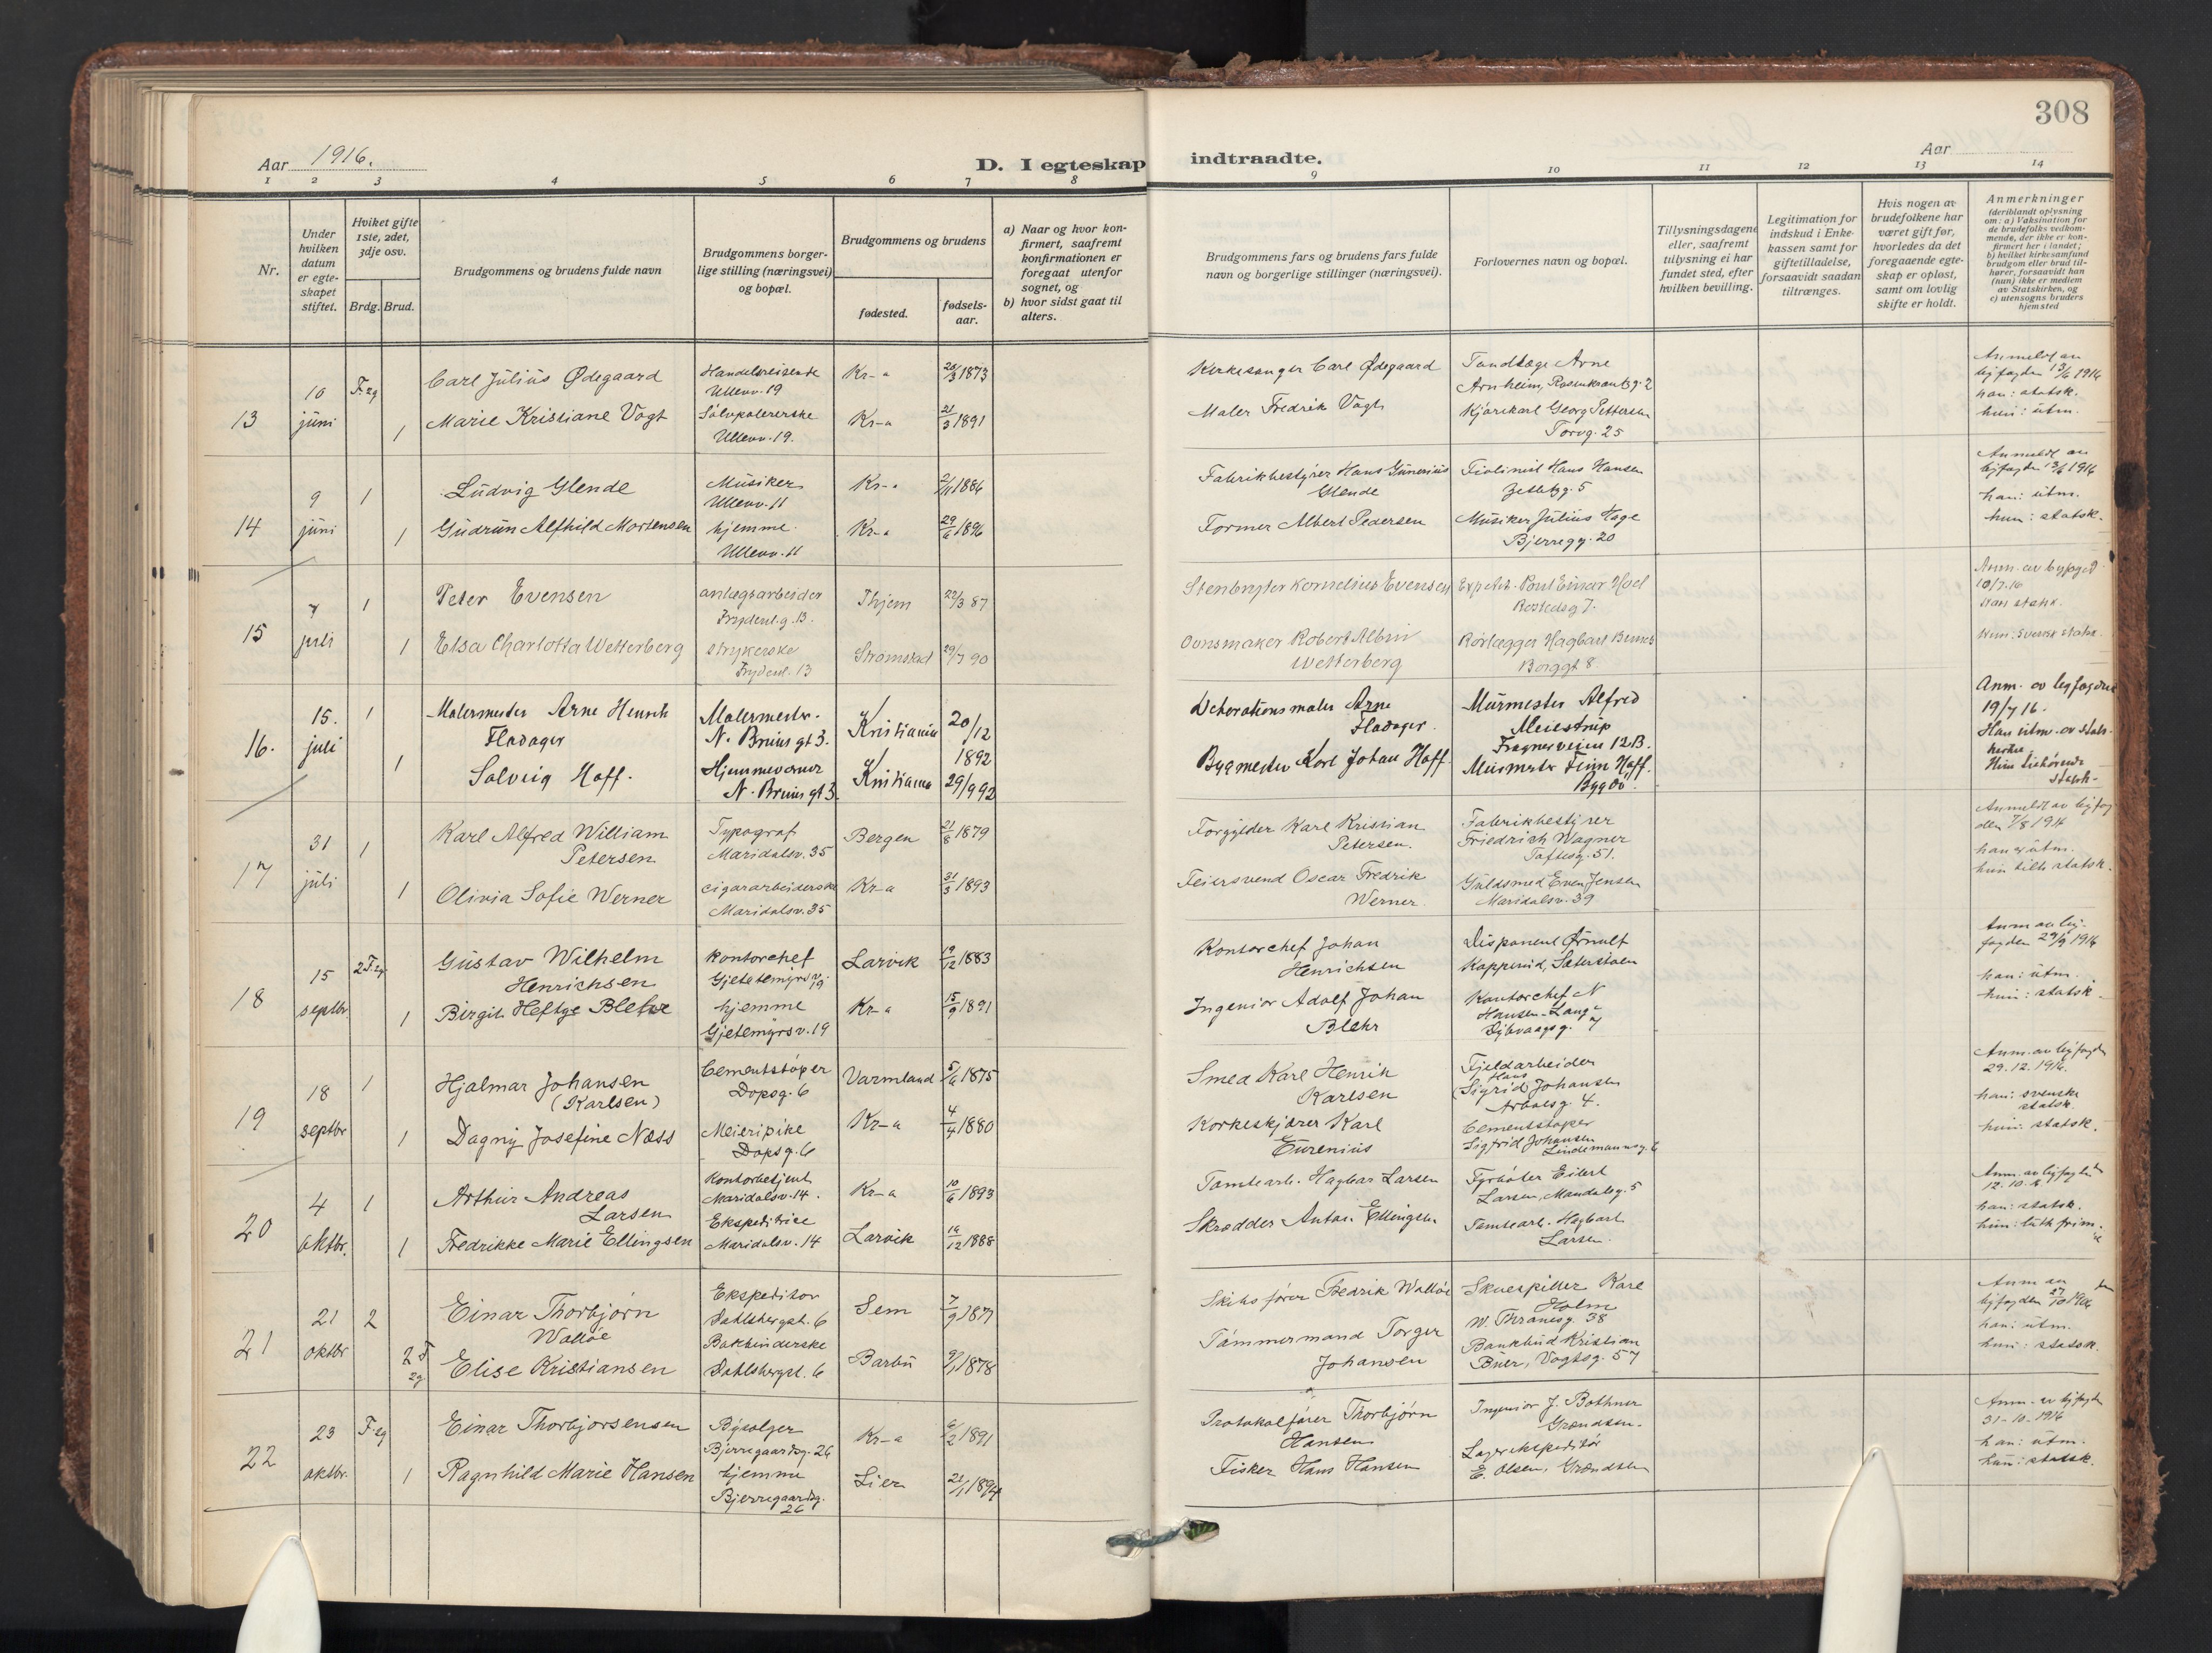 308
Aar 1916.
D. I egteskap indtraadte.
Aar
1 2 3 4 5 6 7 8 9 10 11 12 13 14
Nr.
Under hvilken datum er egte-skapet stiftet.
Hviket gifte 1ste, 2det, 3dje osv.
Brdg. Brud.
Brudgommens og brudens fulde navn
Brudgommens borger-lige stilling (næringsvei) og bopæl.
Brudgommens og brudens
fødested.
fødsels-aar.
a) Naar og hvor kon-firmert, saafremt konfirmationen er foregaat utenfor sognet, og
b) hvor sidst gaat til alters.
Brudgommens fars og brudens fars fulde navn og borgerlige stillinger (næringsvei).
Forlovernes navn og bopæl.
Tillysningsdagene eller, saafremt tillysning ei har fundet sted, efter hvilken bevilling.
Legitimation for indskud i Enke-kassen samt for giftetilladelse, forsaavidt saadan tiltrænges.
Hvis nogen av brudefolkene har været gift før, hvorledes da det foregaaende egte-skap er opløst, samt om lovlig skifte er holdt.
Anmerkninger
(deriblandt oplysning om: a) Vaksination for de brudefolks vedkom-mende, der ikke er kon-firmert her i landet; b) hvilket kirkesamfund brudgom eller brud til-hører, forsaavidt han (hun) ikke er medlem av Statskirken, og c) utensogns bruders hjemsted
13
10 juni
F. eg
1
Carl Julius Ødegaard
Marie Kristiane Vogt
Handelsreisende
Ullevv. 19
Sølvpolererske
Ullevv. 19.
Kr-a
Kr-a
20/3 1873
21/3 1891
Kirkesanger Carl Ødegaard
Maler Fredrik Vogt
Tandlæge Arne
Arnheim, Rosenkrantzg. 2
Kjørekarl Georg Pettersen
Torvg. 25
Anmeldt av
byfogden 13/6 1916
han: statsk.
hun: utm.
14
9 juni
1
1
Ludvig Glende
Gudrun Alfhild Mortensen
Musiker
Ullevv. 11
hjemme
Ullevv. 11
Kr-a
Kr-a
2/11 1886
29/6 1896
Fabrikbestyrer Hans Gunerius
Glende
Former Albert Pedersen
Fiolinist Hans Hansen
Zetlitzg. 5
Musiker Julius Hage
Bjerregg. 20
Anmeldt av
byfogden 13/6 1916
han: utm.
hun: statsk.
15
7 juli
1
1
Peter Evensen
Elsa Charlotta Wetterberg
anlægsarbeider
Frydenl.g. 13.
strykerske
Frydenl. 13
Thjem
Strømstad
22/3 87
29/7 90
Stenbryter Kornelius Evensen
Ovnsmaker Robert Albin
Wetterberg
Poul Einar Hoel
Rørlægger Hagbart
Borggt 8
Anm. av byfogd
10/7.16
Han statsk.
Hun: Svensk statsk.
16.
15. juli
1
1
Malermester Arne Henrik
Fladager
Solveig Hoff.
Malermester.
N. Bruns gt 3.
Hjemmeværer
N. Bruns gt 3.
Kristiania
Kristiania
20/12
1892
29/9 92
Dekorationsmaler Arne
Fladager.
Bygmester Karl Johan Hoff.
Murmester Alfred
Meiestrup
Frognerveien 12B.
Murmester Finn Hoff.
Bygdø.
Anm. av byfogden
19/7 16.
Han utm. av stats-
kirke.
Hun
statsk-
17
31 juli
1
1
Karl Alfred William
Petersen
Olivia Sofie Werner
Typograf
Maridalsv. 35
cigararbeiderske
Maridalsv. 35
Bergen
Kr-a
21/8 1879
31/3 1893
Forgylder Karl Kristian
Petersen.
Feiersvend Oscar Fredrik
Werner.
Fabrikbestyrer
Friedrich Wagner
Toftesg. 51.
Guldsmed Even Jensen
Maridalsv. 39
Anmeldt av byfog
den 7/8 1916
han er utm.
hun tilh statsk.
18
15 septbr.
2 F. eg
1
Gustav Wilhelm
Henrichsen
Birgit Heftye Blehr
kontorchef
Gjetemyrsv. 19
hjemme
Gjetemyrsv. 19
Larvik
Kr-a
19/12 1883
15/9 1891
Kontorchef Johan
Henrichsen
Ingeniør Adolf Johan
Blehr
Disponent Ørnulf
Kapperud, Sæterstøen
Kontorchef N
Hansen-Lange
Dybvaagsg. 7
Anm av by-
fogden 29/9 1916
han: utm.
hun: statsk.
19
18 septbr
1
1
Hjalmar Johansen
(Karlsen)
Dagny Josefine Næss
Cementstøper
Dopsg. 6
Meieripike
Dopsg. 6
Varmland
Kr-a
5/6 1875
4/4 1880
Smed Karl Henrik
Karlsen
Korkeskjærer Karl
Eurenius
Fjeldarbeider
Hans
(Sigrid Johansen
Arbolsg. 4.
Cementstøper
Sigfrid Johansen
Lindemannsg. 6
Anm. av byfogden
29.12.1916.
han: svenske
statsk.
hun: statsk.
20
4 oktbr.
1
1
Arthur Andreas
Larsen
Fredrikke Marie Ellingsen
Kontorbetjent
Maridalsv. 14.
Ekspeditrice
Maridalsv. 14
Kr-a
Larvik
10/6 1893
14/12 1888
Tomtearb. Hagbar Larsen
Skrædder Anton Ellingsen
Fyrbøter Eilert
Larsen, Mandalsg. 5
Tomtearb. Hagbart
Larsen.
Anm. av byfogden
12.10.16
han: statsk.
hun: luth frim.
21
21 oktbr
2
2 F eg
Einar Thorbjørn
Walløe
Elise Kristiansen
Ekspeditør
Dahlsbergst. 6
Bokbinderske
Dahlsbergst. 6
Sem
Barbu
7/9 1871
9/1 1878
Skibsfører Fredrik Walløe
Tømmermand Torger
Johansen
Skuespiller Karl
Holm
W. Thranesg. 38
Bankbud Kristian
Buer, Vogtsg. 57
Anm av
byfogden 27/10 1916
han: utm.
hun: statsk.
22
23 oktbr.
F. eg
1
Einar Thorbjørnsen
Ragnhild Marie Hansen
Byselger
Bjerregaardsg. 26
hjemme
Bjerregaardsg.
26
Kr-a
Lier
6/2 1891
21/1 1894
Protokolfører Thorbjørn
Hansen
Fisker Hans Hansen
Ingeniør J. Bothner
Grændsen.
Lagerekspeditør
E. Olsen, Grændsen
Anm. av byfogden
31-10-1916
han: utm.
hun: statsk.